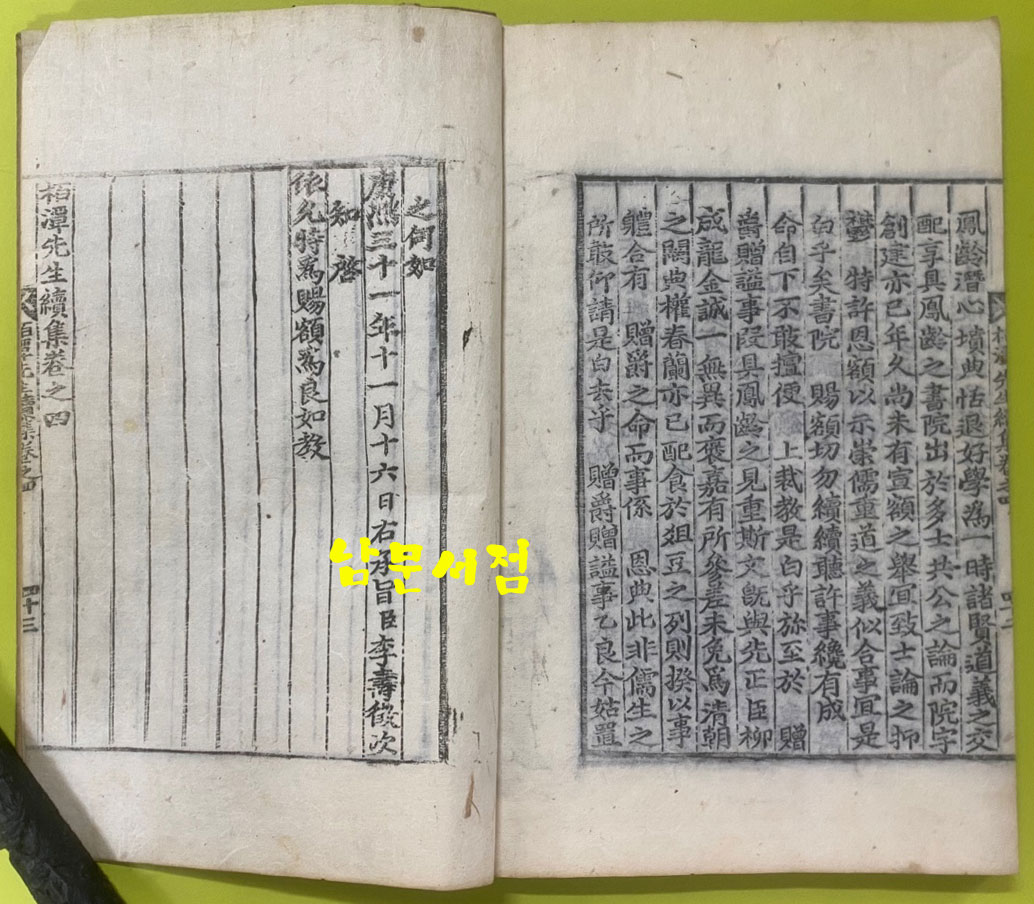 鳳齡潛心墳典恬退好學爲一時諸賢道義之交
配享具鳳齡之書院出於多士共公之論而院宇
創建亦已年久尚未有宣額之舉宜致士論之抑
鬱 特許恩額以示崇儒重道之義似合事宜是
白乎矣書院 賜額切勿續續聽許事纔有成
命自下不敢擅便 上裁教是白乎旀至於 贈
爵贈諡事段具鳳齡之見重斯文旣與先正臣柳
成龍金誠一無異而褒嘉有所參差未免爲清朝
之闕典權春蘭亦已配食於俎豆之列則揆以事
軆合有 贈爵之命而事係 恩典此非儒生之
所敢仰請是白去乎 贈爵贈諡事乙良今姑置
之何如
康熙三十一年十一月十六日右承旨臣李壽徵次
知 啓
依允特爲賜額爲良如教
栢潭先生續集卷之四
四十三
남문서점